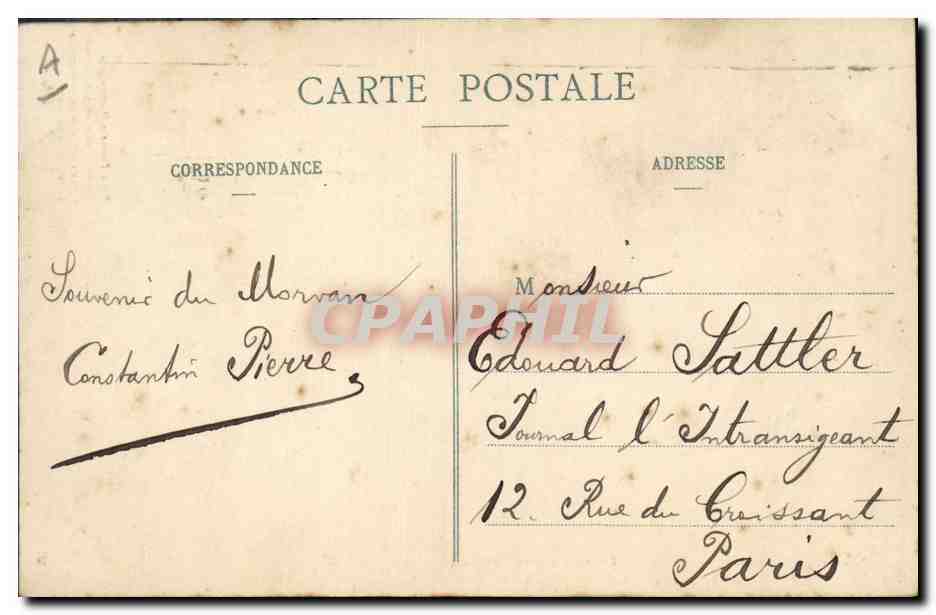 A
CARTE POSTALE
CORRESPONDANCE
Souvenir du Morvan
Constantin Pierre
ADRESSE
Monsieur
Edouard Sattler
Journal l'Intransigeant
12. Rue du Croissant
Paris
CPAPHIL